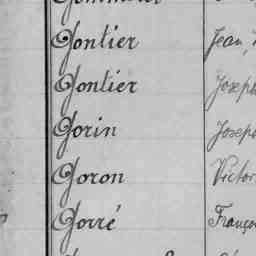 Gontier Jean,
Gontier Joseph
Gorin Joseph
Goron Victor
Gorré Franço